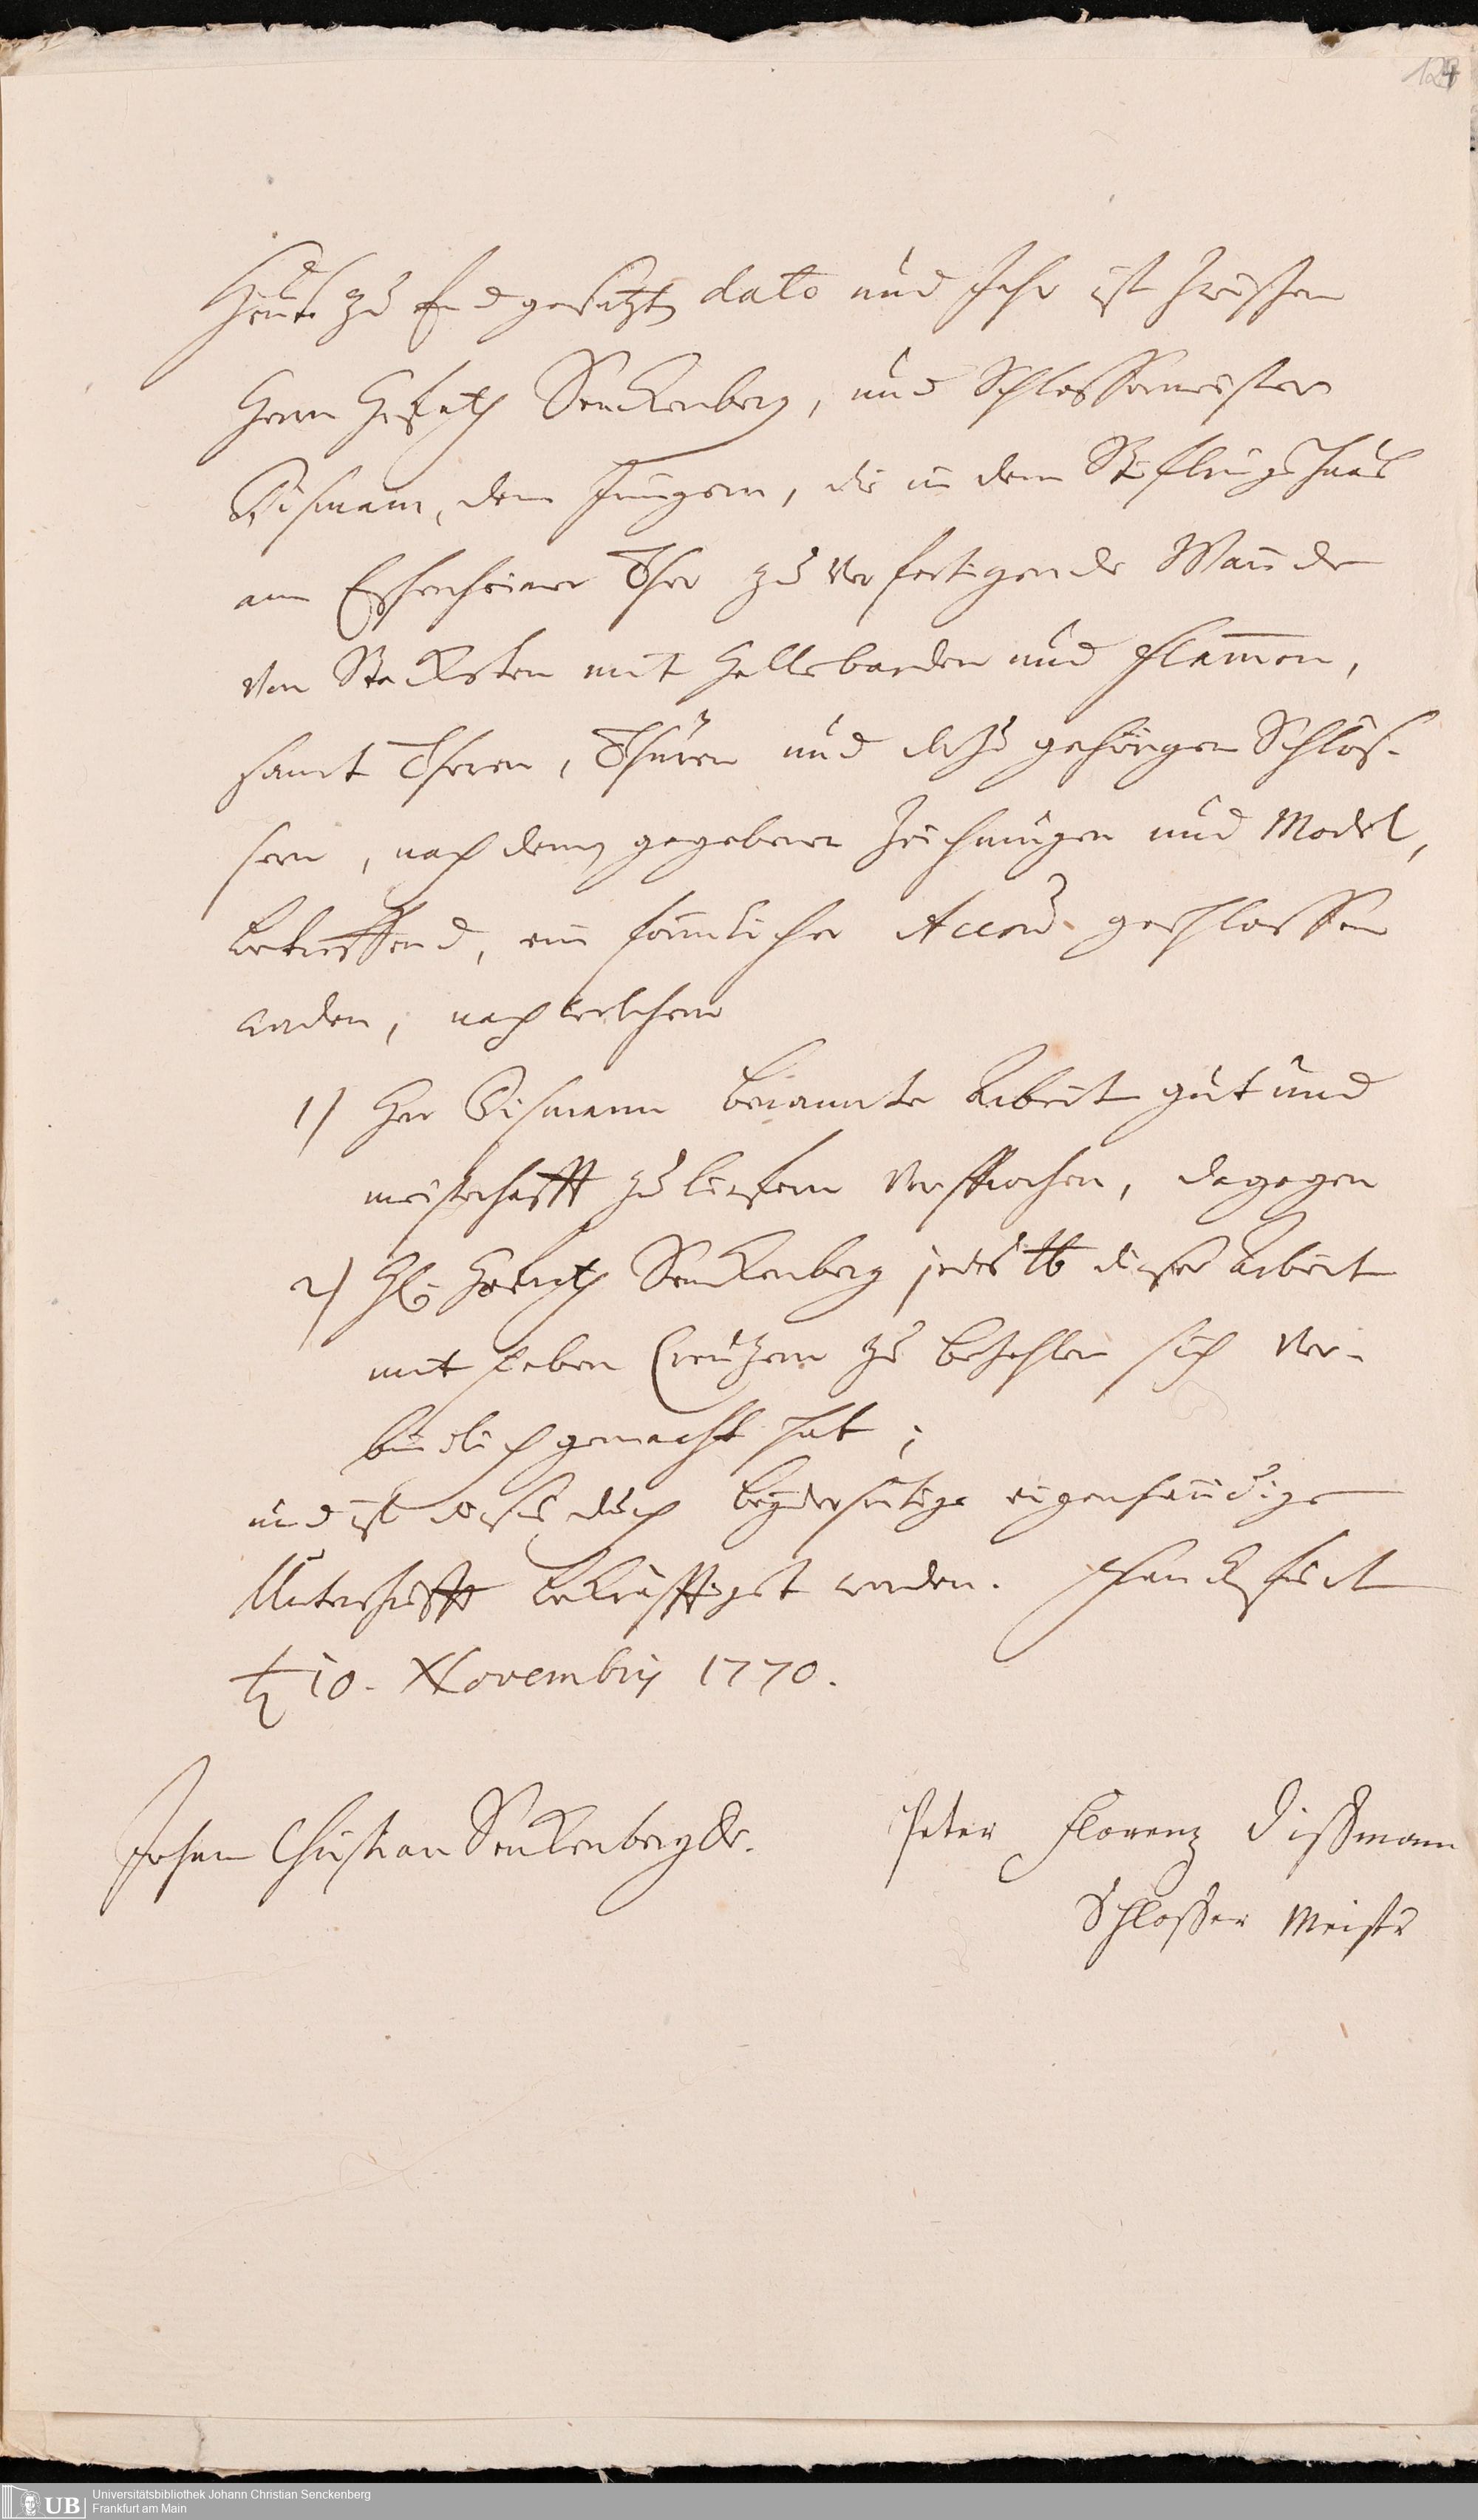 124
Heute zu End gesetztem dato und Jahr ist zwischen
Herrn Hofrath Senckenberg, und Schlossermeistern
Dismann, dem Jüngern, die in dem Stiftungs Haus
am Eschenheimer Thor zu verfertigende Wände
von Stacketen mit Hellebarden und Flam̅en,
samt Thoren, Thüren und dazu gehörigen Schlös-
sern, nach denen gegebenen Zeichnungen und Model,
betreffend, ein förmlicher Accord geschlossen
worden, nach welchem
1) Herr Dismann benannte Arbeit gut und
meisterhafft zu liefern versprochen, dagegen
2) H. Hofrath Senckenberg jedes ℔ dieser Arbeit
mit sieben Creuzern zu bezahlen sich ver-
bindlich gemacht hat;
und ist dieses durch beyderseitige eigenhändige
Unterschrifft bekräfftiget worden. Franckfurt
d. 10. Novembris 1770.
Johann Christian Senckenberg Dr.
Peter Florenz Dissmann
Schlosser Meister
UB
Universitätsbibliothek Johann Christian Senckenberg
Frankfurt am Main